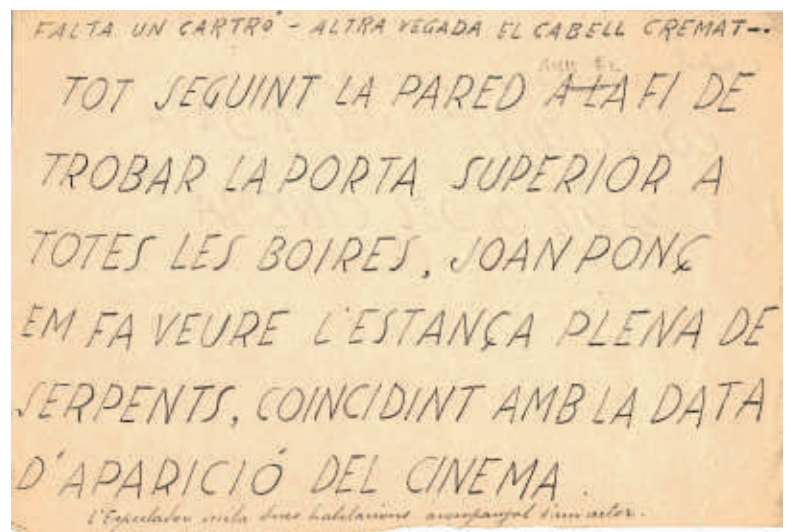 FALTA UN CARTRÓ - ALTRA VEGADA EL CABELL CREMAT-.
AMB EL
TOT SEGUINT LA PARED A LA FI DE
TROBAR LA PORTA SUPERIOR A
TOTES LES BOIRES, JOAN PONÇ
EM FA VEURE L'ESTANÇA PLENA DE
SERPENTS, COINCIDINT AMB LA DATA
D'APARICIÓ DEL CINEMA.
L'Espectador visita dues habitacions acompanyat d'un actor.